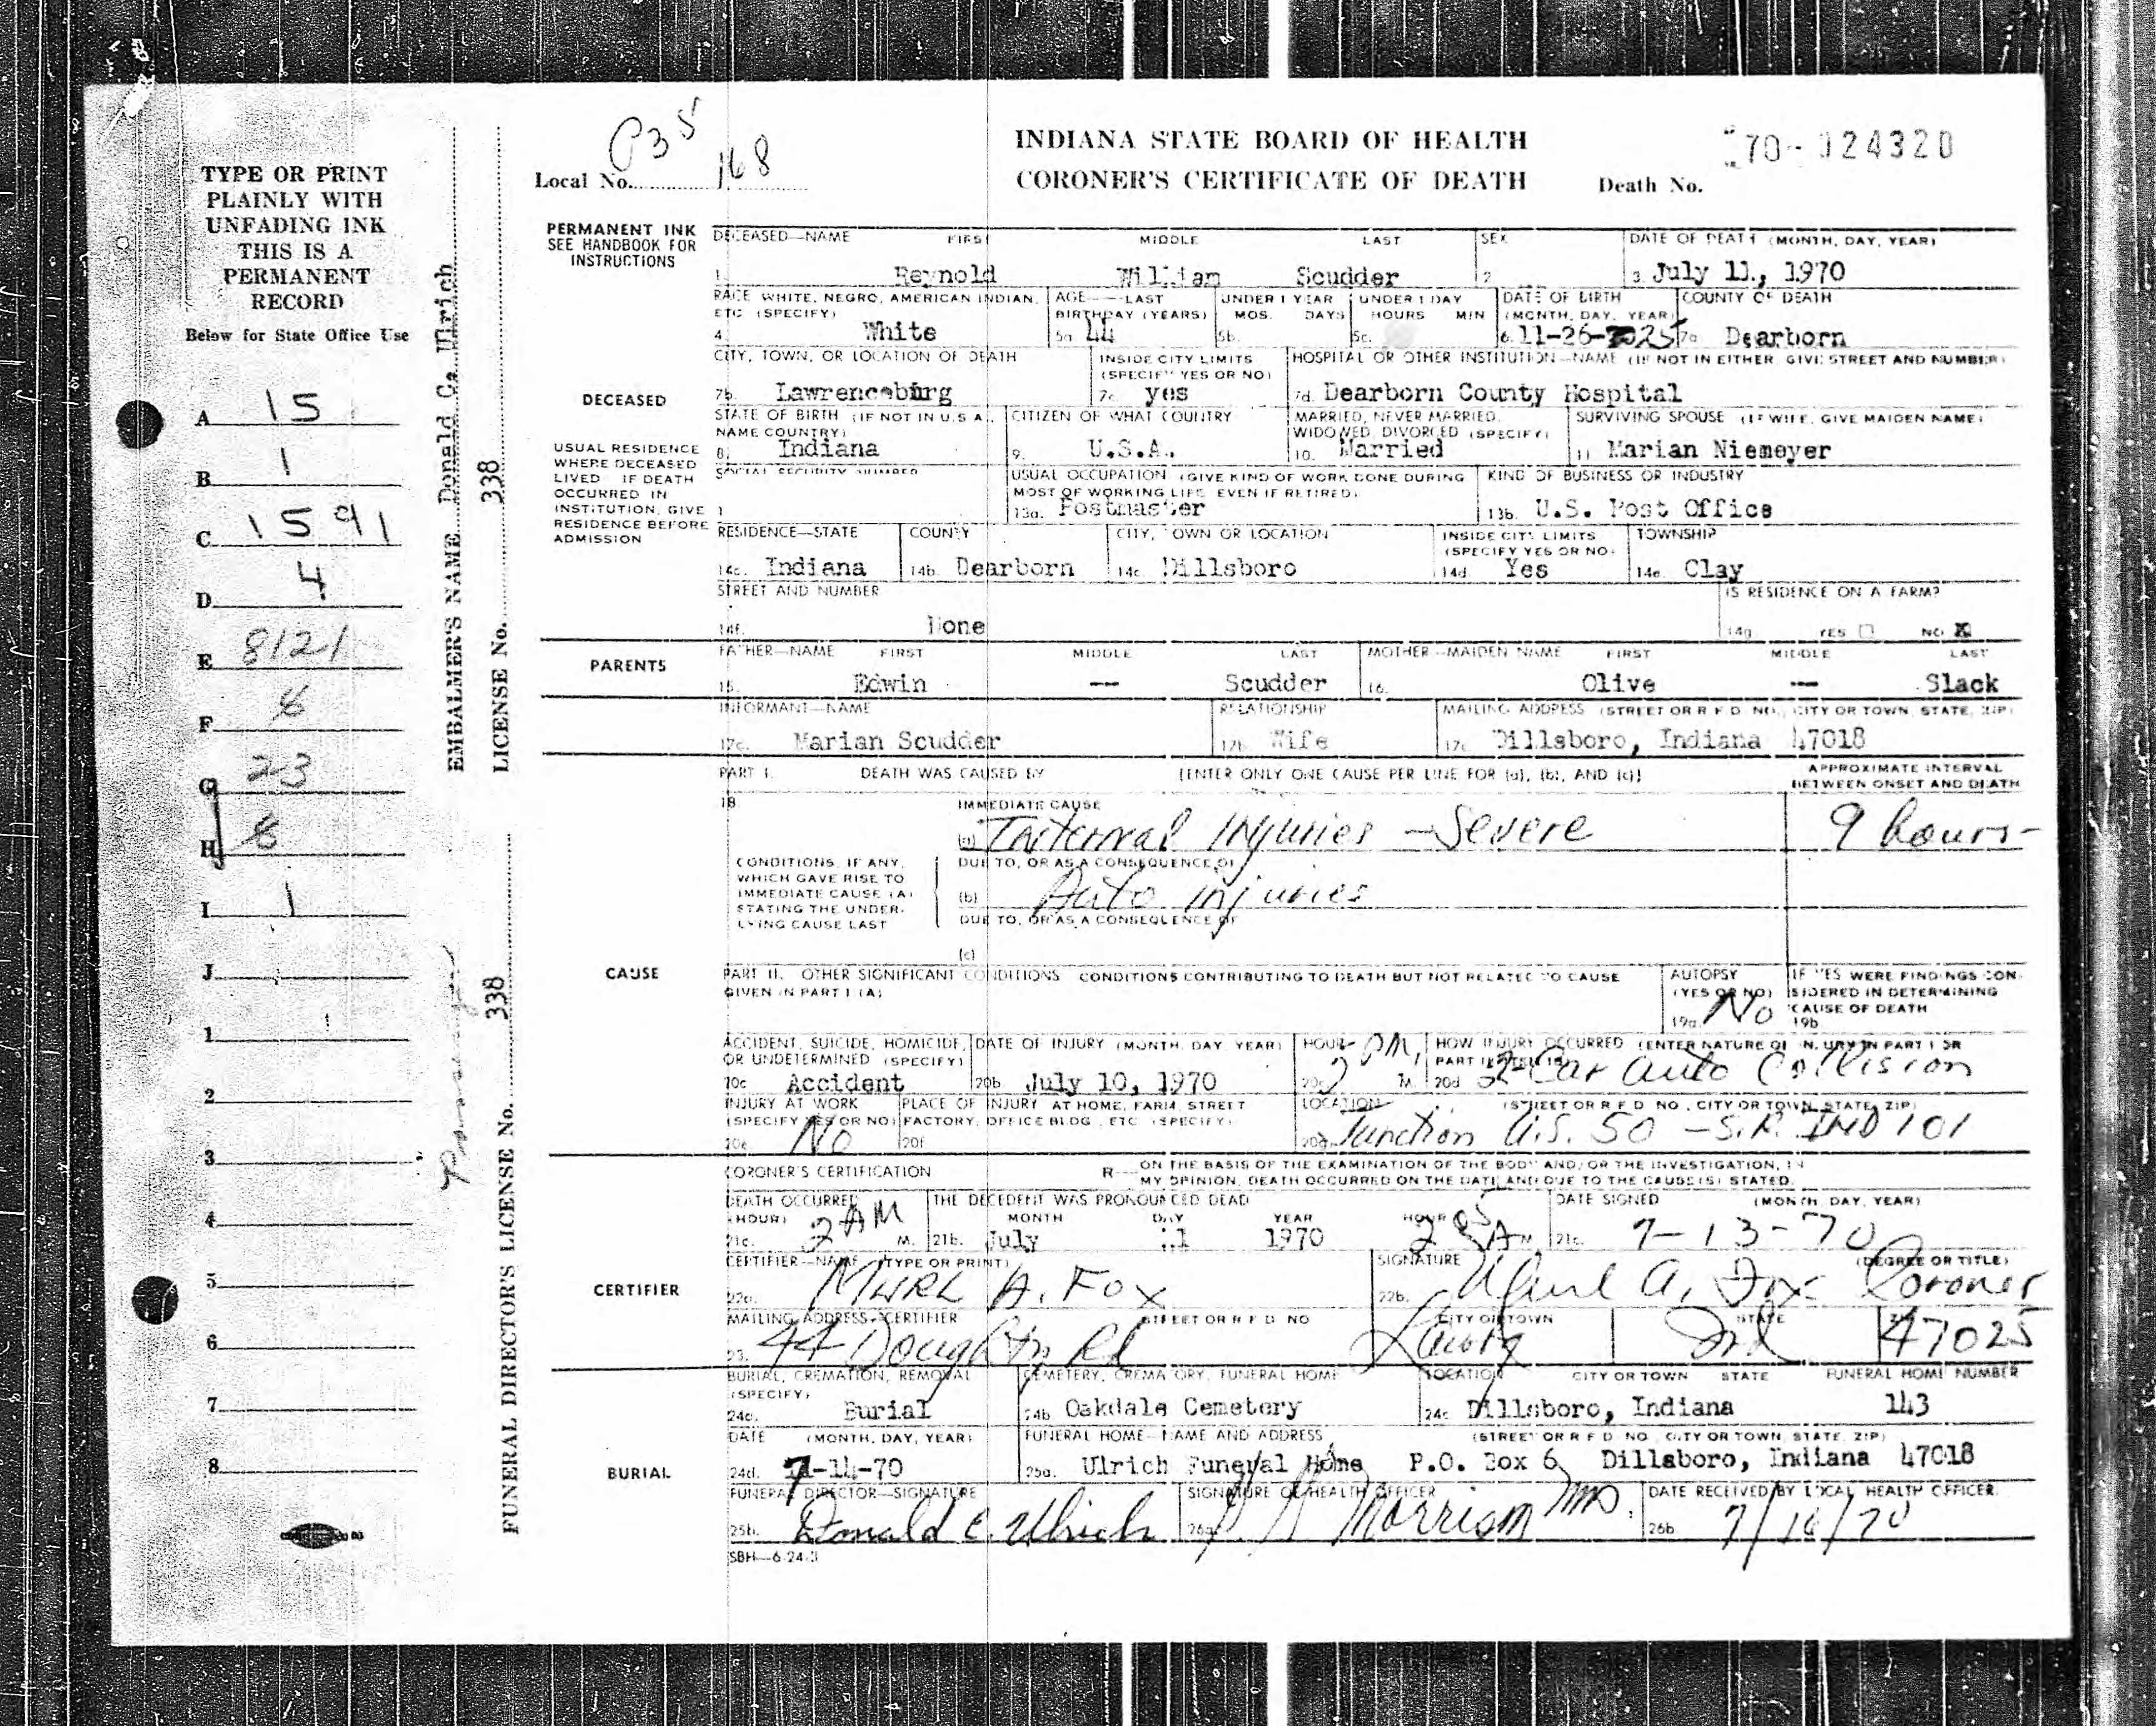 P35
INDIANA STATE BOARD OF HEALTH
CORONER'S CERTIFICATE OF DEATH
Local No. 168
Death No. 70-024320
TYPE OR PRINT
PLAINLY WITH
UNFADING INK
THIS IS A
PERMANENT
RECORD
Below for State Office Use
A 15
B 1
C 1591
D 4
E 8121
F 8
G 23
H 8
I 1
J
1
2
3
4
5
6
7
8
EMBALMER'S NAME Donald C. Ulrich
LICENSE No. 338
FUNERAL DIRECTOR'S LICENSE No. 338
PERMANENT INK
SEE HANDBOOK FOR
INSTRUCTIONS
DECEASED—NAME FIRST MIDDLE LAST SEX DATE OF DEATH (MONTH, DAY, YEAR)
1. Reynold William Scudder 2. 3. July 11, 1970
RACE WHITE, NEGRO, AMERICAN INDIAN, AGE—LAST UNDER 1 YEAR UNDER 1 DAY DATE OF BIRTH COUNTY OF DEATH
ETC. (SPECIFY) BIRTHDAY (YEARS) MOS. DAYS HOURS MIN (MONTH, DAY, YEAR)
4. White 5a. 44 5b. 5c. 6. 11-26-25 7a. Dearborn
CITY, TOWN, OR LOCATION OF DEATH INSIDE CITY LIMITS HOSPITAL OR OTHER INSTITUTION—NAME (IF NOT IN EITHER GIVE STREET AND NUMBER)
(SPECIFY YES OR NO)
DECEASED
7b. Lawrenceburg 7c. yes 7d. Dearborn County Hospital
STATE OF BIRTH (IF NOT IN U.S.A., CITIZEN OF WHAT COUNTRY MARRIED, NEVER MARRIED, SURVIVING SPOUSE (IF WIFE, GIVE MAIDEN NAME)
NAME COUNTRY) WIDOWED, DIVORCED (SPECIFY)
8. Indiana 9. U.S.A. 10. Married 11. Marian Niemeyer
USUAL RESIDENCE
WHERE DECEASED
LIVED IF DEATH
OCCURRED IN
INSTITUTION, GIVE
RESIDENCE BEFORE
ADMISSION
SOCIAL SECURITY NUMBER USUAL OCCUPATION (GIVE KIND OF WORK DONE DURING KIND OF BUSINESS OR INDUSTRY
MOST OF WORKING LIFE, EVEN IF RETIRED)
13a. Postmaster 13b. U.S. Post Office
RESIDENCE—STATE COUNTY CITY, TOWN OR LOCATION INSIDE CITY LIMITS TOWNSHIP
(SPECIFY YES OR NO)
14a. Indiana 14b. Dearborn 14c. Dillsboro 14d. Yes 14e. Clay
STREET AND NUMBER IS RESIDENCE ON A FARM?
14f. None 14g YES NO X
PARENTS
FATHER—NAME FIRST MIDDLE LAST MOTHER—MAIDEN NAME FIRST MIDDLE LAST
15. Edwin -- Scudder 16. Olive -- Slack
INFORMANT—NAME RELATIONSHIP MAILING ADDRESS (STREET OR R F D NO., CITY OR TOWN, STATE, ZIP)
17a. Marian Scudder 17b. Wife 17c. Dillsboro, Indiana 47018
PART I. DEATH WAS CAUSED BY [ENTER ONLY ONE CAUSE PER LINE FOR (a), (b), AND (c)] APPROXIMATE INTERVAL
BETWEEN ONSET AND DEATH
18. IMMEDIATE CAUSE
(a) Internal Injuries - Severe 9 hours-
CONDITIONS, IF ANY,
WHICH GAVE RISE TO
IMMEDIATE CAUSE (A)
STATING THE UNDER-
LYING CAUSE LAST
DUE TO, OR AS A CONSEQUENCE OF
(b) Auto injuries
DUE TO, OR AS A CONSEQUENCE OF
(c)
CAUSE
PART II. OTHER SIGNIFICANT CONDITIONS CONDITIONS CONTRIBUTING TO DEATH BUT NOT RELATED TO CAUSE
GIVEN IN PART I (A)
AUTOPSY
(YES OR NO)
19a. No
IF YES WERE FINDINGS CON-
SIDERED IN DETERMINING
CAUSE OF DEATH
19b
ACCIDENT, SUICIDE, HOMICIDE, DATE OF INJURY (MONTH, DAY, YEAR) HOUR HOW INJURY OCCURRED (ENTER NATURE OF INJURY IN PART I OR
OR UNDETERMINED (SPECIFY) PART II, ITEM 18)
20a Accident 20b July 10, 1970 20c PM M. 20d 2 Car Auto Collision
INJURY AT WORK PLACE OF INJURY AT HOME, FARM, STREET LOCATION (STREET OR R F D NO., CITY OR TOWN, STATE, ZIP)
(SPECIFY YES OR NO) FACTORY, OFFICE BLDG., ETC. (SPECIFY)
20e No 20f 20g Junction U.S. 50 - S.R. IND 101
CORONER'S CERTIFICATION R— ON THE BASIS OF THE EXAMINATION OF THE BODY AND/OR THE INVESTIGATION, IN
MY OPINION, DEATH OCCURRED ON THE DATE AND DUE TO THE CAUSE(S) STATED.
DEATH OCCURRED THE DECEDENT WAS PRONOUNCED DEAD DATE SIGNED (MONTH, DAY, YEAR)
(HOUR) MONTH DAY YEAR HOUR
21a. 2 AM M. 21b. July 11 1970 2 05 A M 21c. 7-13-70
CERTIFIER
CERTIFIER—NAME (TYPE OR PRINT) SIGNATURE (DEGREE OR TITLE)
22a. MURL A. FOX 22b. Murl A. Fox Coroner
MAILING ADDRESS—CERTIFIER STREET OR R F D NO CITY OR TOWN STATE
23. 44 Doughty Rd Lawbg Ind 47025
BURIAL, CREMATION, REMOVAL CEMETERY, CREMATORY, FUNERAL HOME LOCATION CITY OR TOWN STATE FUNERAL HOME NUMBER
(SPECIFY)
24a. Burial 24b Oakdale Cemetery 24c Dillsboro, Indiana 143
BURIAL
DATE (MONTH, DAY, YEAR) FUNERAL HOME—NAME AND ADDRESS (STREET OR R F D NO., CITY OR TOWN, STATE, ZIP)
24d. 7-14-70 25a. Ulrich Funeral Home P.O. Box 6 Dillsboro, Indiana 47018
FUNERAL DIRECTOR—SIGNATURE SIGNATURE OF HEALTH OFFICER DATE RECEIVED BY LOCAL HEALTH OFFICER
25b. Donald C. Ulrich 26a Morrison MD. 26b 7/16/70
SBH—6-24-3